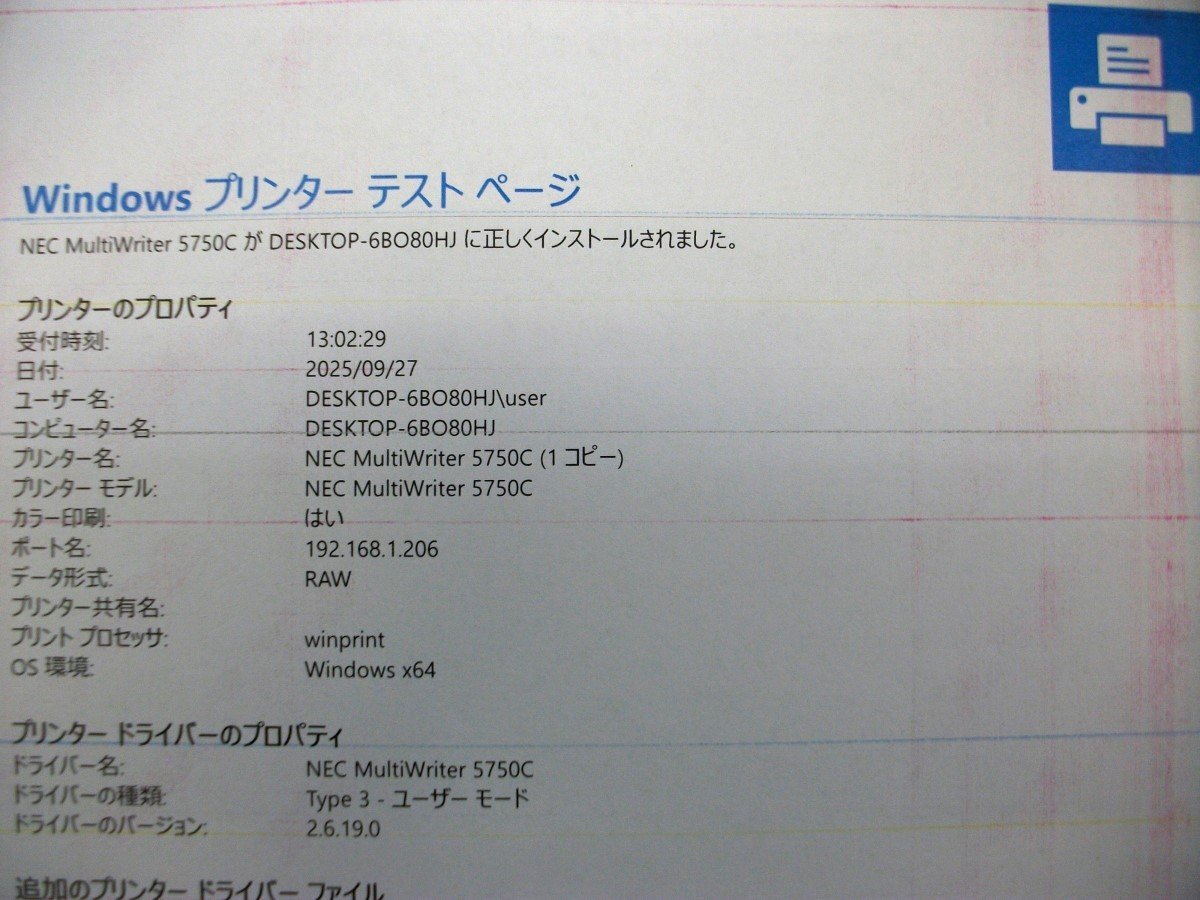 Windows プリンター テスト ページ
NEC MultiWriter 5750C が DESKTOP-6BO80HJ に正しくインストールされました。
プリンターのプロパティ
受付時刻: 13:02:29
日付: 2025/09/27
ユーザー名: DESKTOP-6BO80HJ\user
コンピューター名: DESKTOP-6BO80HJ
プリンター名: NEC MultiWriter 5750C (1 コピー)
プリンター モデル: NEC MultiWriter 5750C
カラー印刷: はい
ポート名: 192.168.1.206
データ形式: RAW
プリンター共有名:
プリント プロセッサ: winprint
OS 環境: Windows x64
プリンター ドライバーのプロパティ
ドライバー名: NEC MultiWriter 5750C
ドライバーの種類: Type 3 - ユーザー モード
ドライバーのバージョン: 2.6.19.0
追加のプリンター ドライバー ファイル